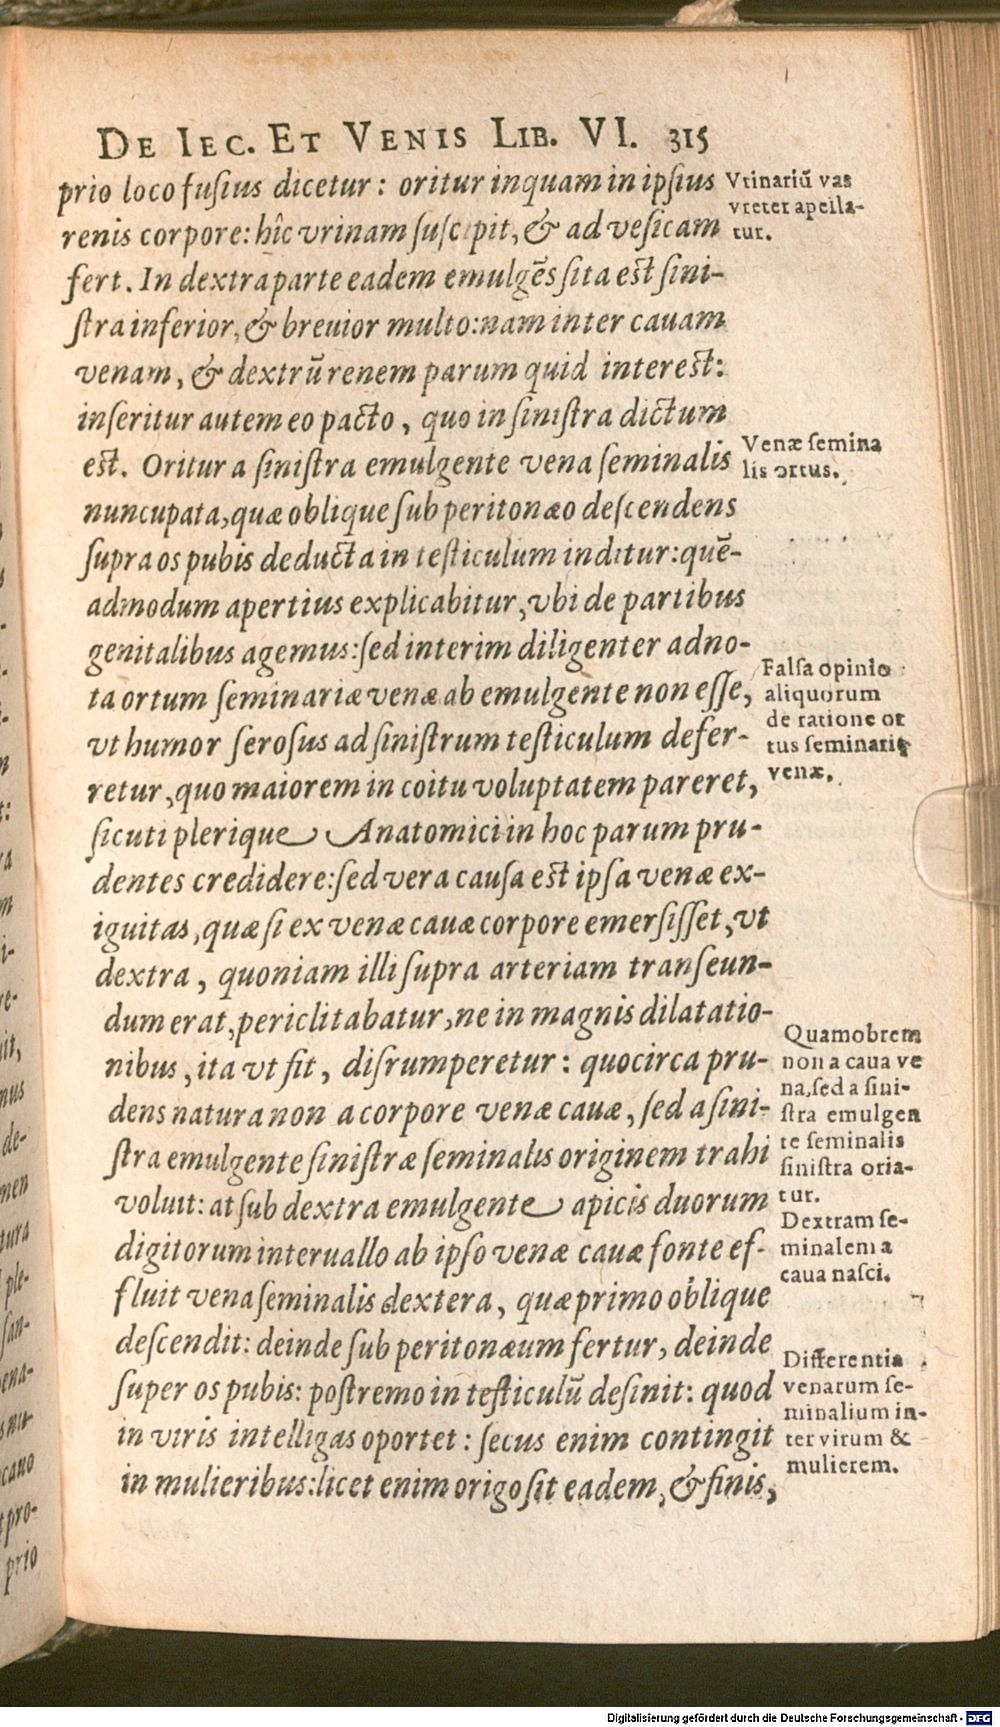 DE IEC. ET VENIS LIB. VI. 315
prio loco fusius dicetur: oritur inquam in ipsius
renis corpore: hîc vrinam suscipit, & ad vesicam
fert. In dextra parte eadem emulgēs sita est sini-
stra inferior, & breuior multo: nam inter cauam
venam, & dextrū renem parum quid interest:
inseritur autem eo pacto, quo in sinistra dictum
est. Oritur a sinistra emulgente vena seminalis
nuncupata, quæ oblique sub peritonæo descendens
supra os pubis deducta in testiculum inditur: quē-
admodum apertius explicabitur, vbi de partibus
genitalibus agemus: sed interim diligenter adno-
ta ortum seminariæ venæ ab emulgente non esse,
vt humor serosus ad sinistrum testiculum defer-
retur, quo maiorem in coitu voluptatem pareret,
sicuti plerique Anatomici in hoc parum pru-
dentes credidere: sed vera causa est ipsa venæ ex-
iguitas, quæ si ex venæ cauæ corpore emersisset, vt
dextra, quoniam illi supra arteriam transeun-
dum erat, periclitabatur, ne in magnis dilatatio-
nibus, ita vt fit, disrumperetur: quocirca pru-
dens natura non a corpore venæ cauæ, sed a sini-
stra emulgente sinistræ seminalis originem trahi
voluit: at sub dextra emulgente apicis duorum
digitorum interuallo ab ipso venæ cauæ fonte ef-
fluit vena seminalis dextera, quæ primo oblique
descendit: deinde sub peritonæum fertur, deinde
super os pubis: postremo in testiculū desinit: quod
in viris intelligas oportet: secus enim contingit
in mulieribus: licet enim origo sit eadem, & finis,
Vrinariū vas
vreter apella-
tur.
Venæ semina
lis ortus.
Falsa opinio
aliquorum
de ratione or
tus seminarię
venæ.
Quamobrem
non a caua ve
na, sed a sini-
stra emulgen
te seminalis
sinistra oria-
tur.
Dextram se-
minalem a
caua nasci.
Differentia
venarum se-
minalium in-
ter virum &
mulierem.
t:
ra
m
i-
ve-
uit,
mus
de-
men
tura
ple-
san-
ena-
cauo
pro-
prio
Digitalisierung gefördert durch die Deutsche Forschungsgemeinschaft - DFG